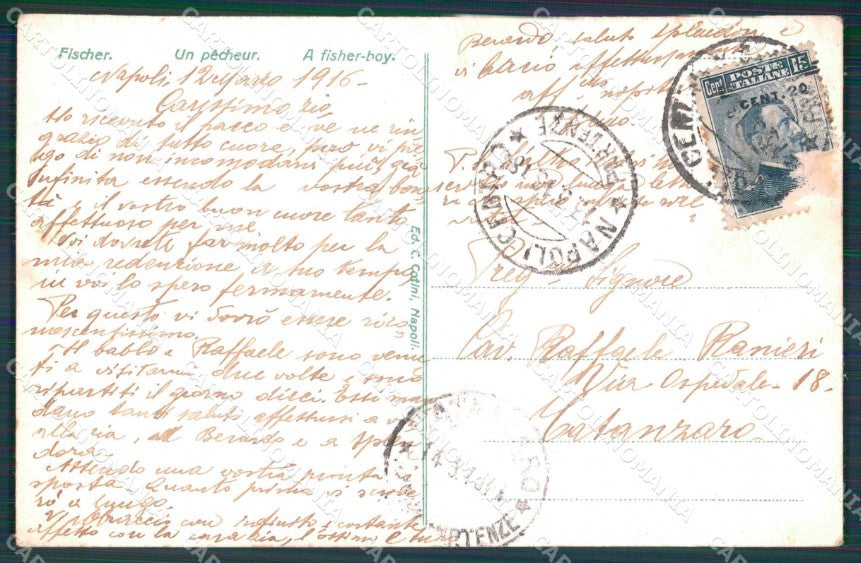 Fischer. Un pêcheur. A fisher-boy.
Napoli, 12 Marzo 1916-
Carissimo zio,
Ho ricevuto il pacco e ve ne rin"
grazio di tutto cuore, però vi pre
go di non incomodarvi più, già
infinita essendo la vostra bon"
tà e il vostro buon cuore tanto
affettuoso per me.
Voi dovete far molto per la
mia redenzione e a suo tempo,
io lo spero fermamente.
Per questo vi dovrò essere rico"
noscentissimo.
Il babbo e Raffaele sono venu"
ti a visitarmi due volte e sono
ripartiti il giorno dieci. Essi man
dano tanti saluti affettuosi a voi
alla zia, a Berardo e a Splen
dora.
Attendo una vostra pronta ri
sposta. Quanto prima vi scrive
rò a lungo.
V'abbraccio con infinito e costante
affetto con la cara zia, l'ottimo e
Berardo, saluto Splendora e
vi bacio affettuosamente
aff. nipote
P.
Ed. C. Cotini, Napoli.
POSTE ITALIANE
Cent. 15
CENT. 20
NAPOLI CENTRO
PARTENZE
Preg. Signore
Cav. Raffaele Ranieri
Via Ospedale- 18-
Catanzaro-
CATANZARO
PARTENZE
CARTOLINOMANIA